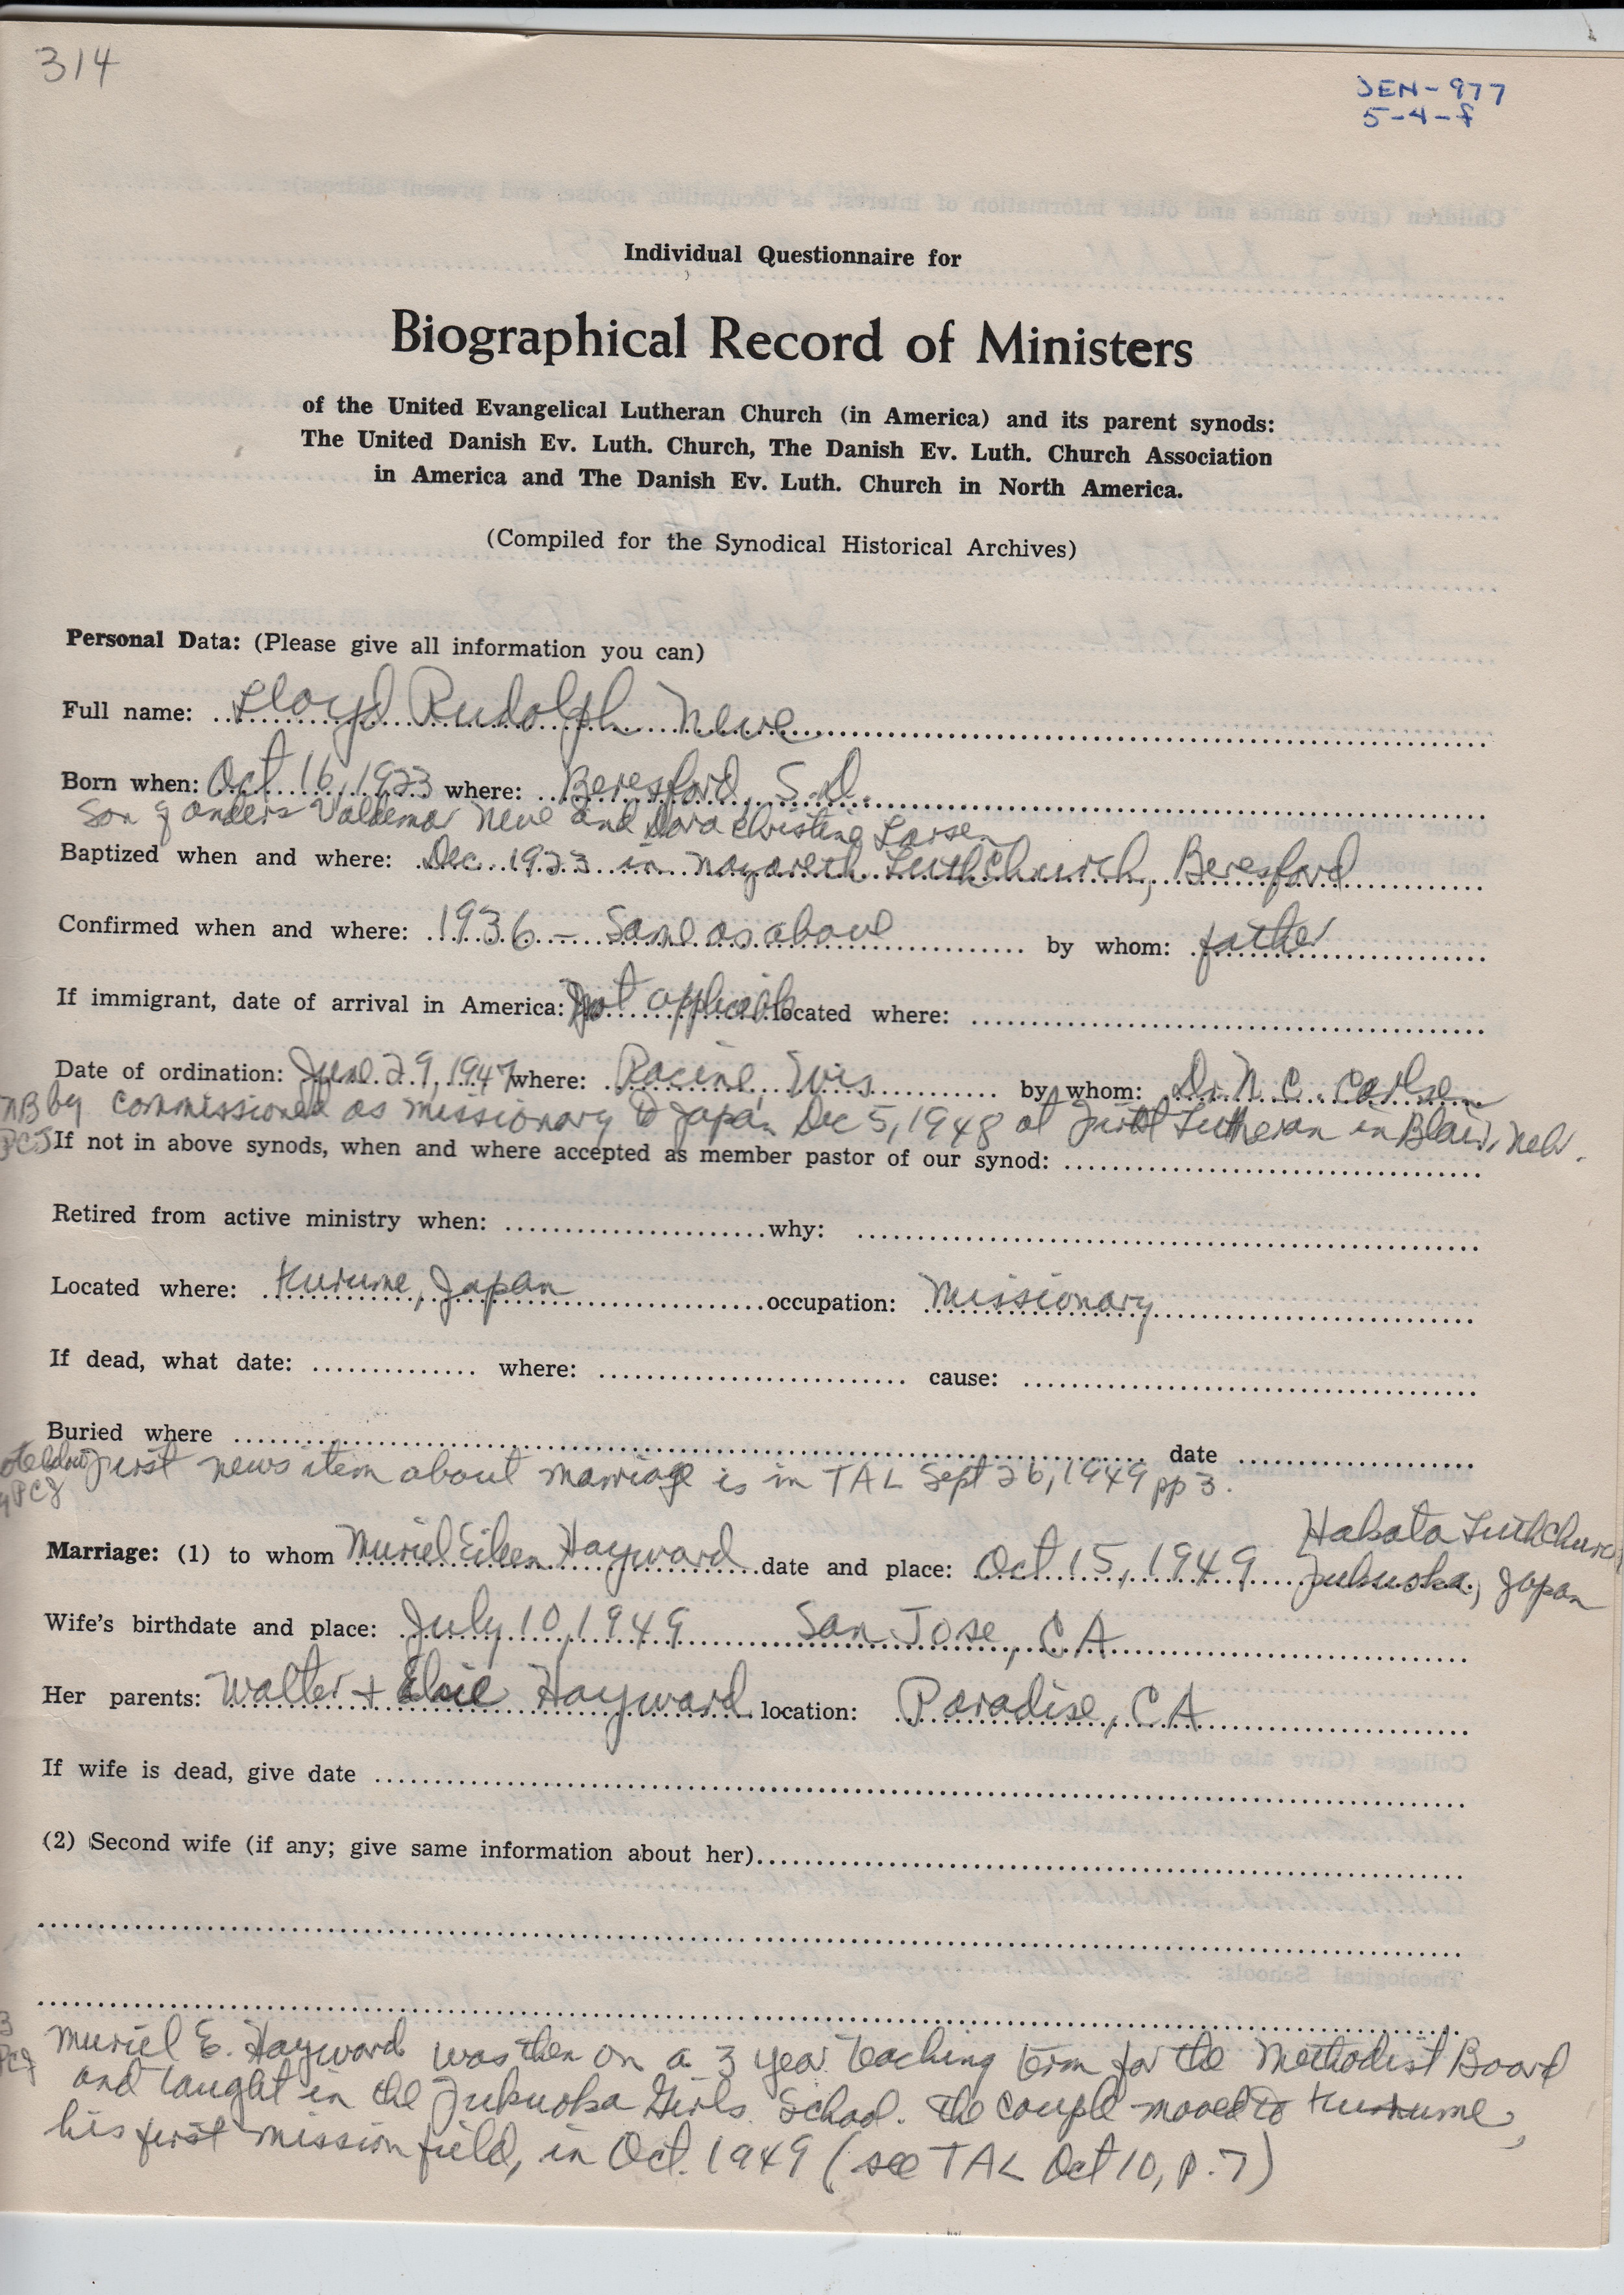 314
DEN-977
5-4-f
Individual Questionnaire for
Biographical Record of Ministers
of the United Evangelical Lutheran Church (in America) and its parent synods:
The United Danish Ev. Luth. Church, The Danish Ev. Luth. Church Association
in America and The Danish Ev. Luth. Church in North America.
(Compiled for the Synodical Historical Archives)
Personal Data: (Please give all information you can)
Full name: Lloyd Rudolph Neve
Born when: Oct 16, 1923 where: Beresford, S.D.
Son of Anders Valdemar Neve and Dora Christine Larsen
Baptized when and where: Dec. 1923 in Nazareth Luth Church, Beresford
Confirmed when and where: 1936 - Same as above by whom: father
If immigrant, date of arrival in America: Not applicable located where:
Date of ordination: June 29, 1947 where: Racine, Wis by whom: Dr. N. C. Carlsen
NB by commissioned as missionary to Japan Dec 5, 1948 at First Lutheran in Blair, Nebr.
PCJ If not in above synods, when and where accepted as member pastor of our synod:
Retired from active ministry when: why:
Located where: Kurume, Japan occupation: Missionary
If dead, what date: where: cause:
Buried where date
First news item about marriage is in TAL Sept 26, 1949 pp 3.
PCJ
Hakata Luth Church
Marriage: (1) to whom Muriel Eileen Hayward date and place: Oct 15, 1949 Fukuoka, Japan
Wife's birthdate and place: July 10, 1949 San Jose, CA
Her parents: Walter + Elsie Hayward location: Paradise, CA
If wife is dead, give date
(2) Second wife (if any; give same information about her)
Muriel E. Hayward was then on a 3 year teaching term for the Methodist Board
PCJ and taught in the Fukuoka Girls School. The couple moved to Kurume,
his first mission field, in Oct. 1949 (see TAL Oct 10, p. 7)